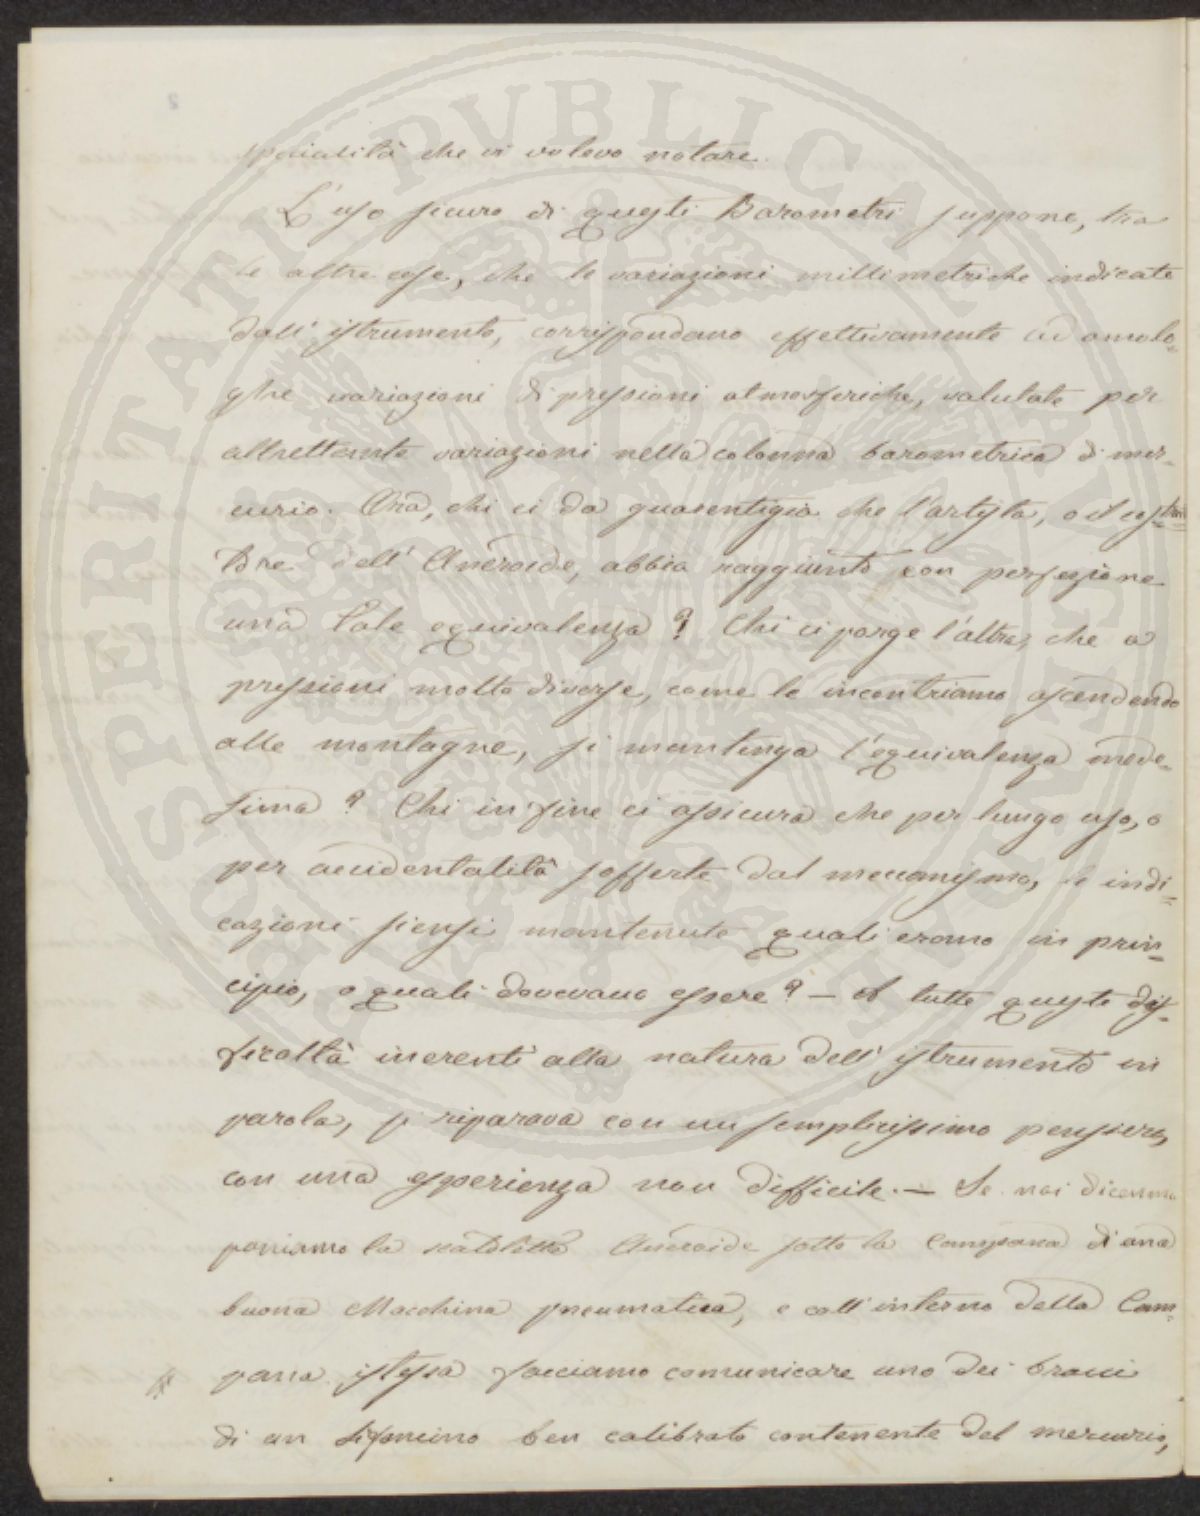 specialità che vi volevo notare.
L'uso sicuro di questi Barometri suppone, tra
le altre cose, che le variazioni millimetriche indicate
dall'istrumento, corrispondano effettivamente ad omolo=
ghe variazioni di pressioni atmosferiche, valutate per
altrettante variazioni nella colonna barometrica di mer=
curio. Ora, chi ci dà guarentigia che l'artista, o il costrut=
tore dell'Aneroide, abbia raggiunto con perfezione
una tale equivalenza? Chi ci porge l'altra, che a
pressioni molto diverse, come le incontriamo ascendendo
alle montagne, si mantenga l'equivalenza mede=
sima? Chi in fine ci assicura che per lungo uso, o
per accidentalità sofferte dal meccanismo, le indi=
cazioni siensi mantenute quali erano in prin=
cipio, o quali dovevano essere? — A tutte queste dif=
ficoltà inerenti alla natura dell'istrumento in
parola, si riparava con un semplicissimo pensiero,
con una esperienza non difficile. — Se noi dicemmo
poniamo la scatoletta Aneroide sotto la Campana di una
buona Macchina pneumatica, e coll'interno della Cam=
pana istessa facciamo comunicare uno dei bracci
di un sifoncino ben calibrato contenente del mercurio,
SPERITATI PVBLICAE